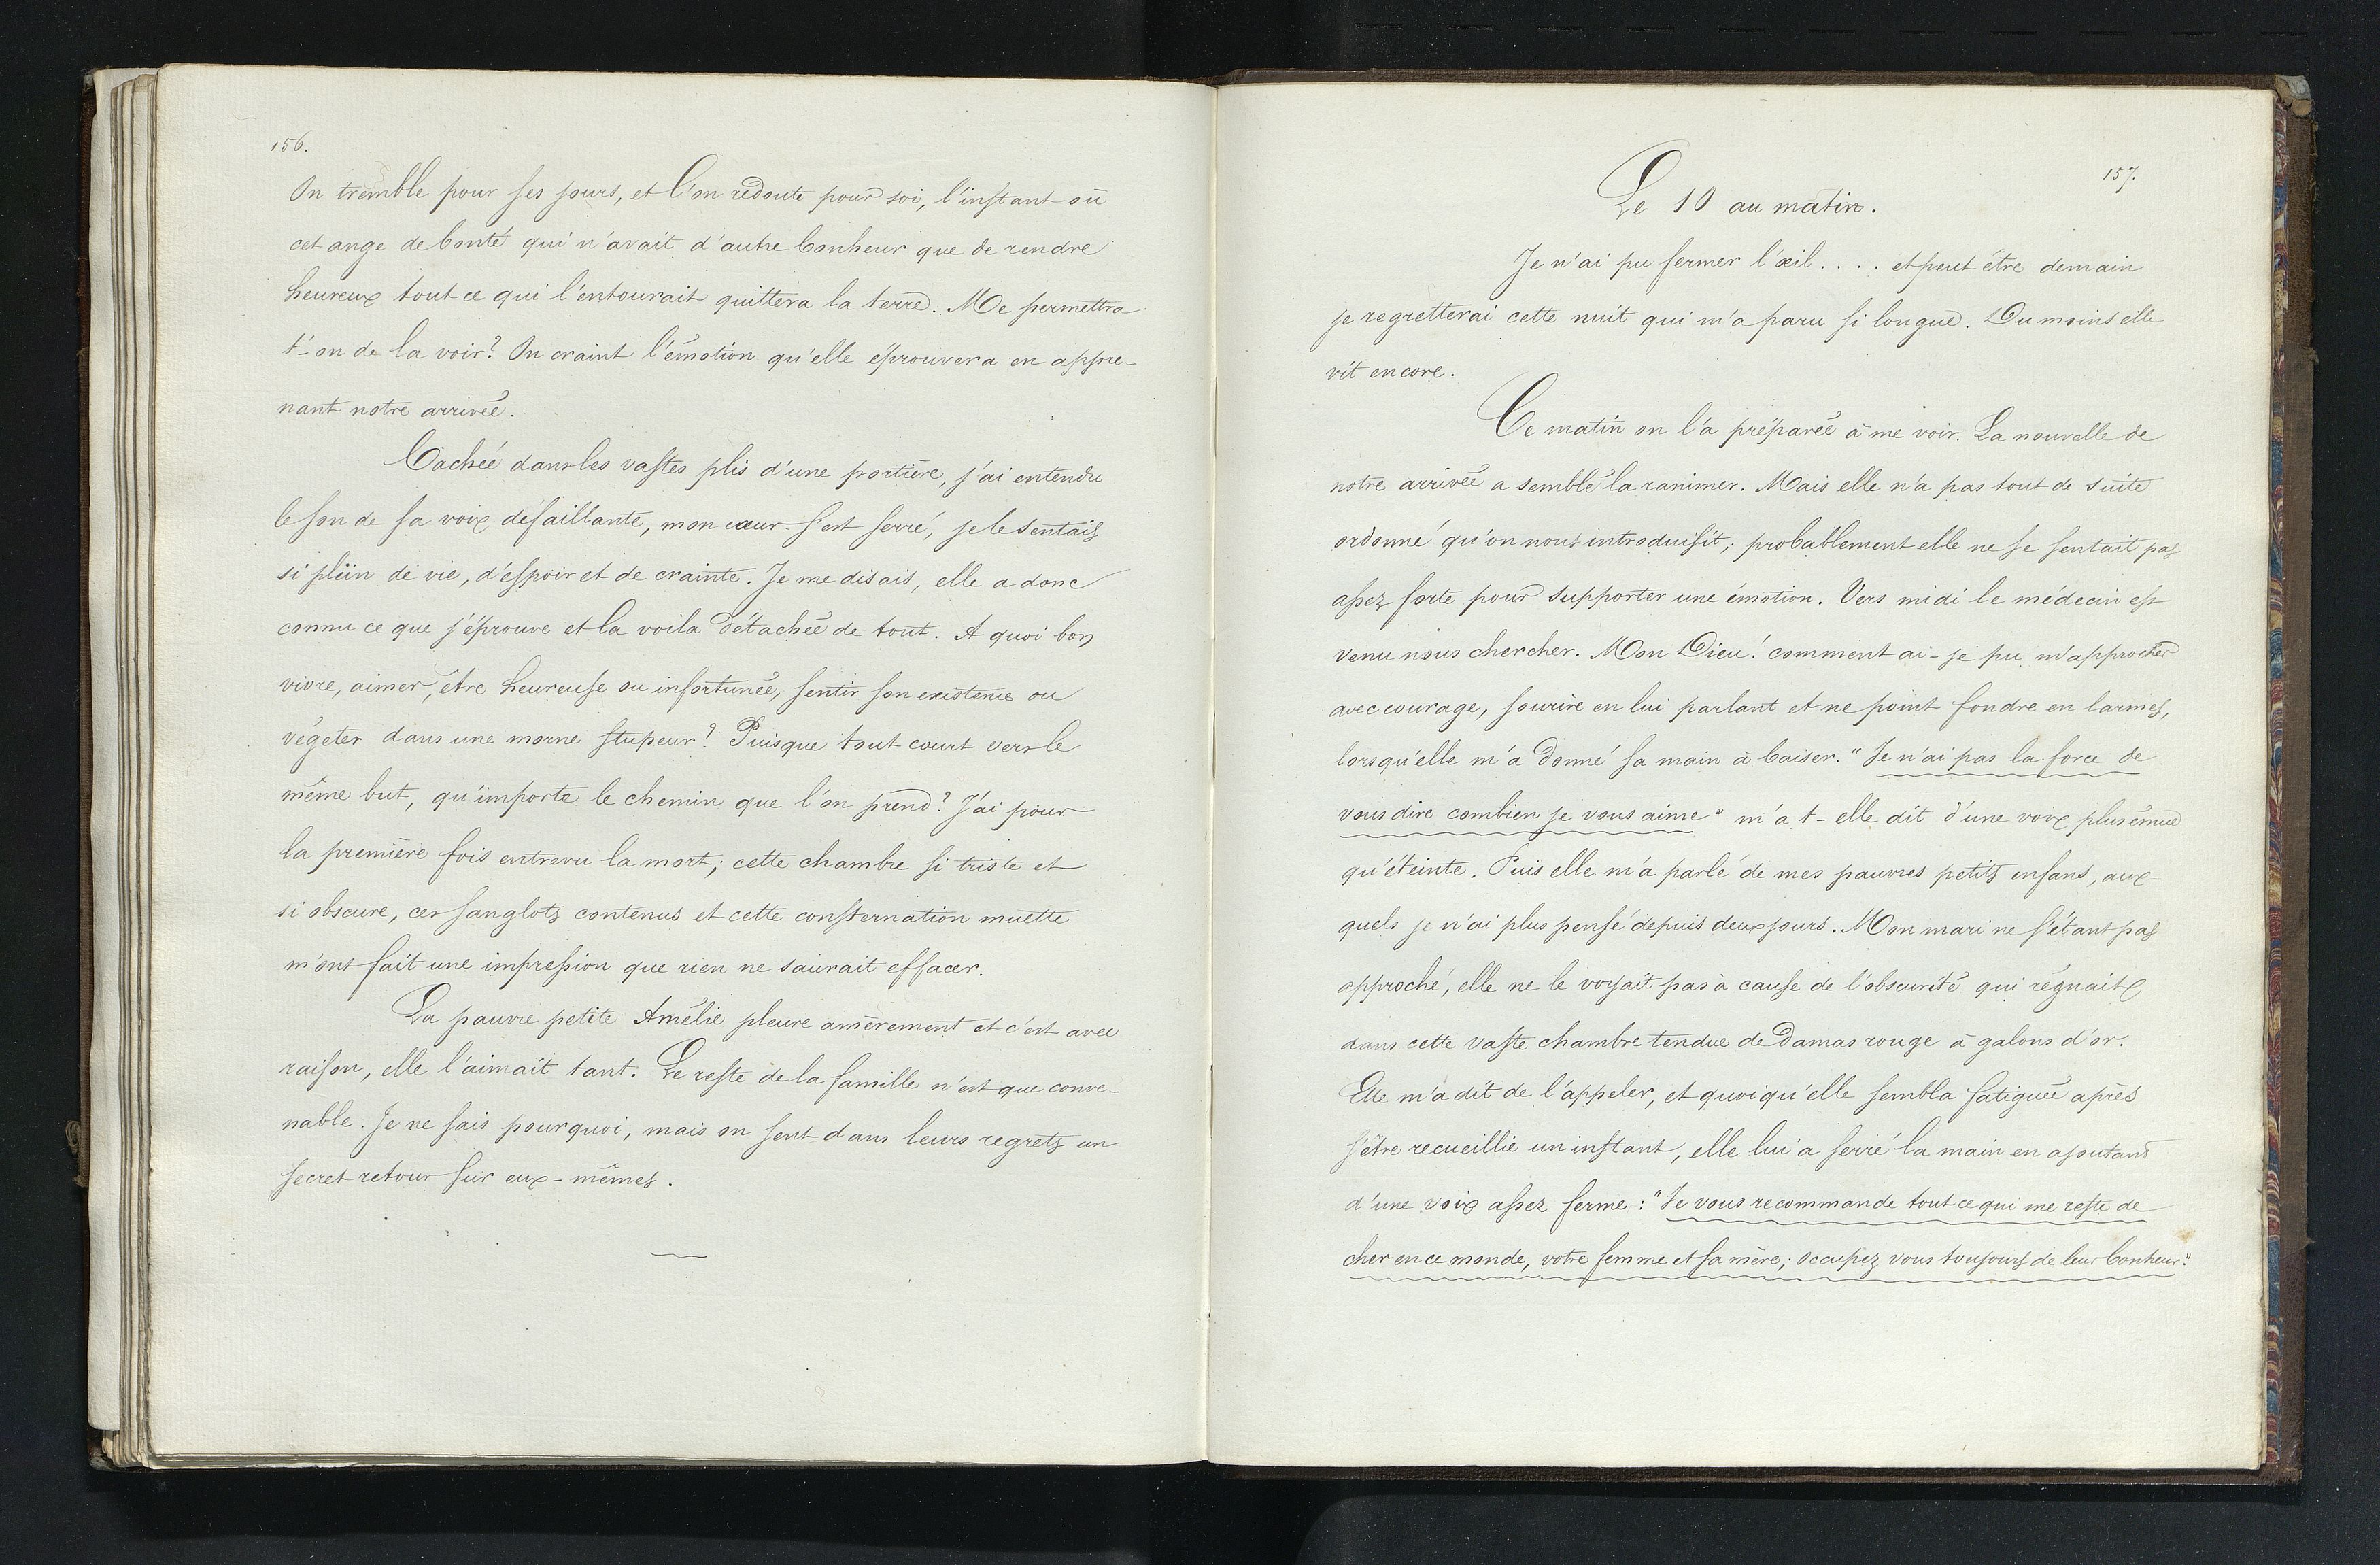 156.
On tremble pour ses jours, et l'on redoute pour soi, l'instant où
cet ange de bonté qui n'avait d'autre bonheur que de rendre
heureux tout ce qui l'entourait quittera la terre. Me permettra
t'-on de la voir? On craint l'émotion qu'elle éprouvera en appre-
nant notre arrivée.
Cachée dans les vastes plis d'une portière, j'ai entendu
le son de sa voix défaillante, mon cœur s'est serré, je le sentais
si plein de vie, d'espoir et de crainte. Je me disais, elle a donc
connu ce que j'éprouve et la voila détachée de tout. A quoi bon
vivre, aimer, être heureuse ou infortunée, sentir son existence ou
végeter dans une morne stupeur? Puisque tout court vers le
même but, qu'importe le chemin que l'on prend? J'ai pour
la première fois entrevu la mort; cette chambre si triste et
si obscure, ces sanglots contenus et cette consternation muette
m'ont fait une impression que rien ne saurait effacer.
La pauvre petite Amélie pleure amèrement et c'est avec
raison, elle l'aimait tant. Le reste de la famille n'est que conve-
nable. Je ne sais pourquoi, mais on sent dans leurs regrets un
secret retour sur eux-mêmes.
157.
Le 10 au matin.
Je n'ai pu fermer l'œil.... et peut être demain
je regretterai cette nuit qui m'a paru si longue. Du moins elle
vit encore.
Ce matin on l'a préparée à me voir. La nouvelle de
notre arrivée a semblé la ranimer. Mais elle n'a pas tout de suite
ordonné qu'on nous introduisit; probablement elle ne se sentait pas
assez forte pour supporter une émotion. Vers midi le médecin est
venu nous chercher. Mon Dieu! comment ai-je pu m'approcher
avec courage, sourire en lui parlant et ne point fondre en larmes,
lorsqu'elle m'a donné sa main à baiser. "Je n'ai pas la force de
vous dire combien je vous aime" m'a t-elle dit d'une voix plus émue
qu'éteinte. Puis elle m'a parlé de mes pauvres petits enfans, aux-
quels je n'ai plus pensé depuis deux jours. Mon mari ne s'étant pas
approché, elle ne le voyait pas à cause de l'obscurité qui régnait
dans cette vaste chambre tendue de Damas rouge à galons d'or.
Elle m'a dit de l'appeler, et quoiqu'elle sembla fatiguée après
s'être recueillie un instant, elle lui a serré la main en ajoutant
d'une voix assez ferme: "Je vous recommande tout ce qui me reste de
cher en ce monde, votre femme et sa mère; occupez vous toujours de leur bonheur."